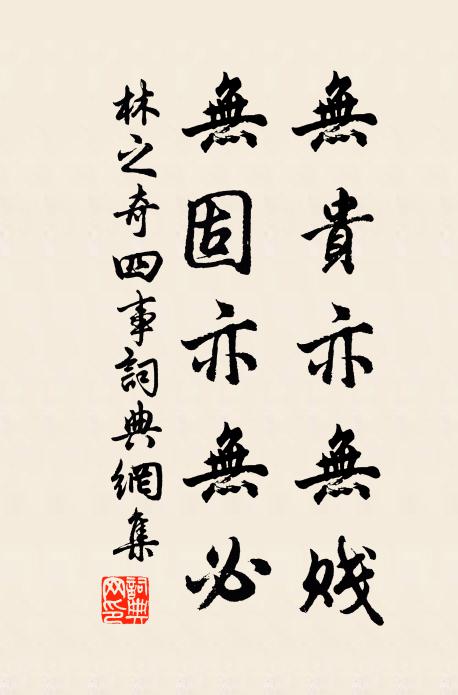 無貴亦無賤
無固亦無必
林之奇四事詞典網集
詞典
网印